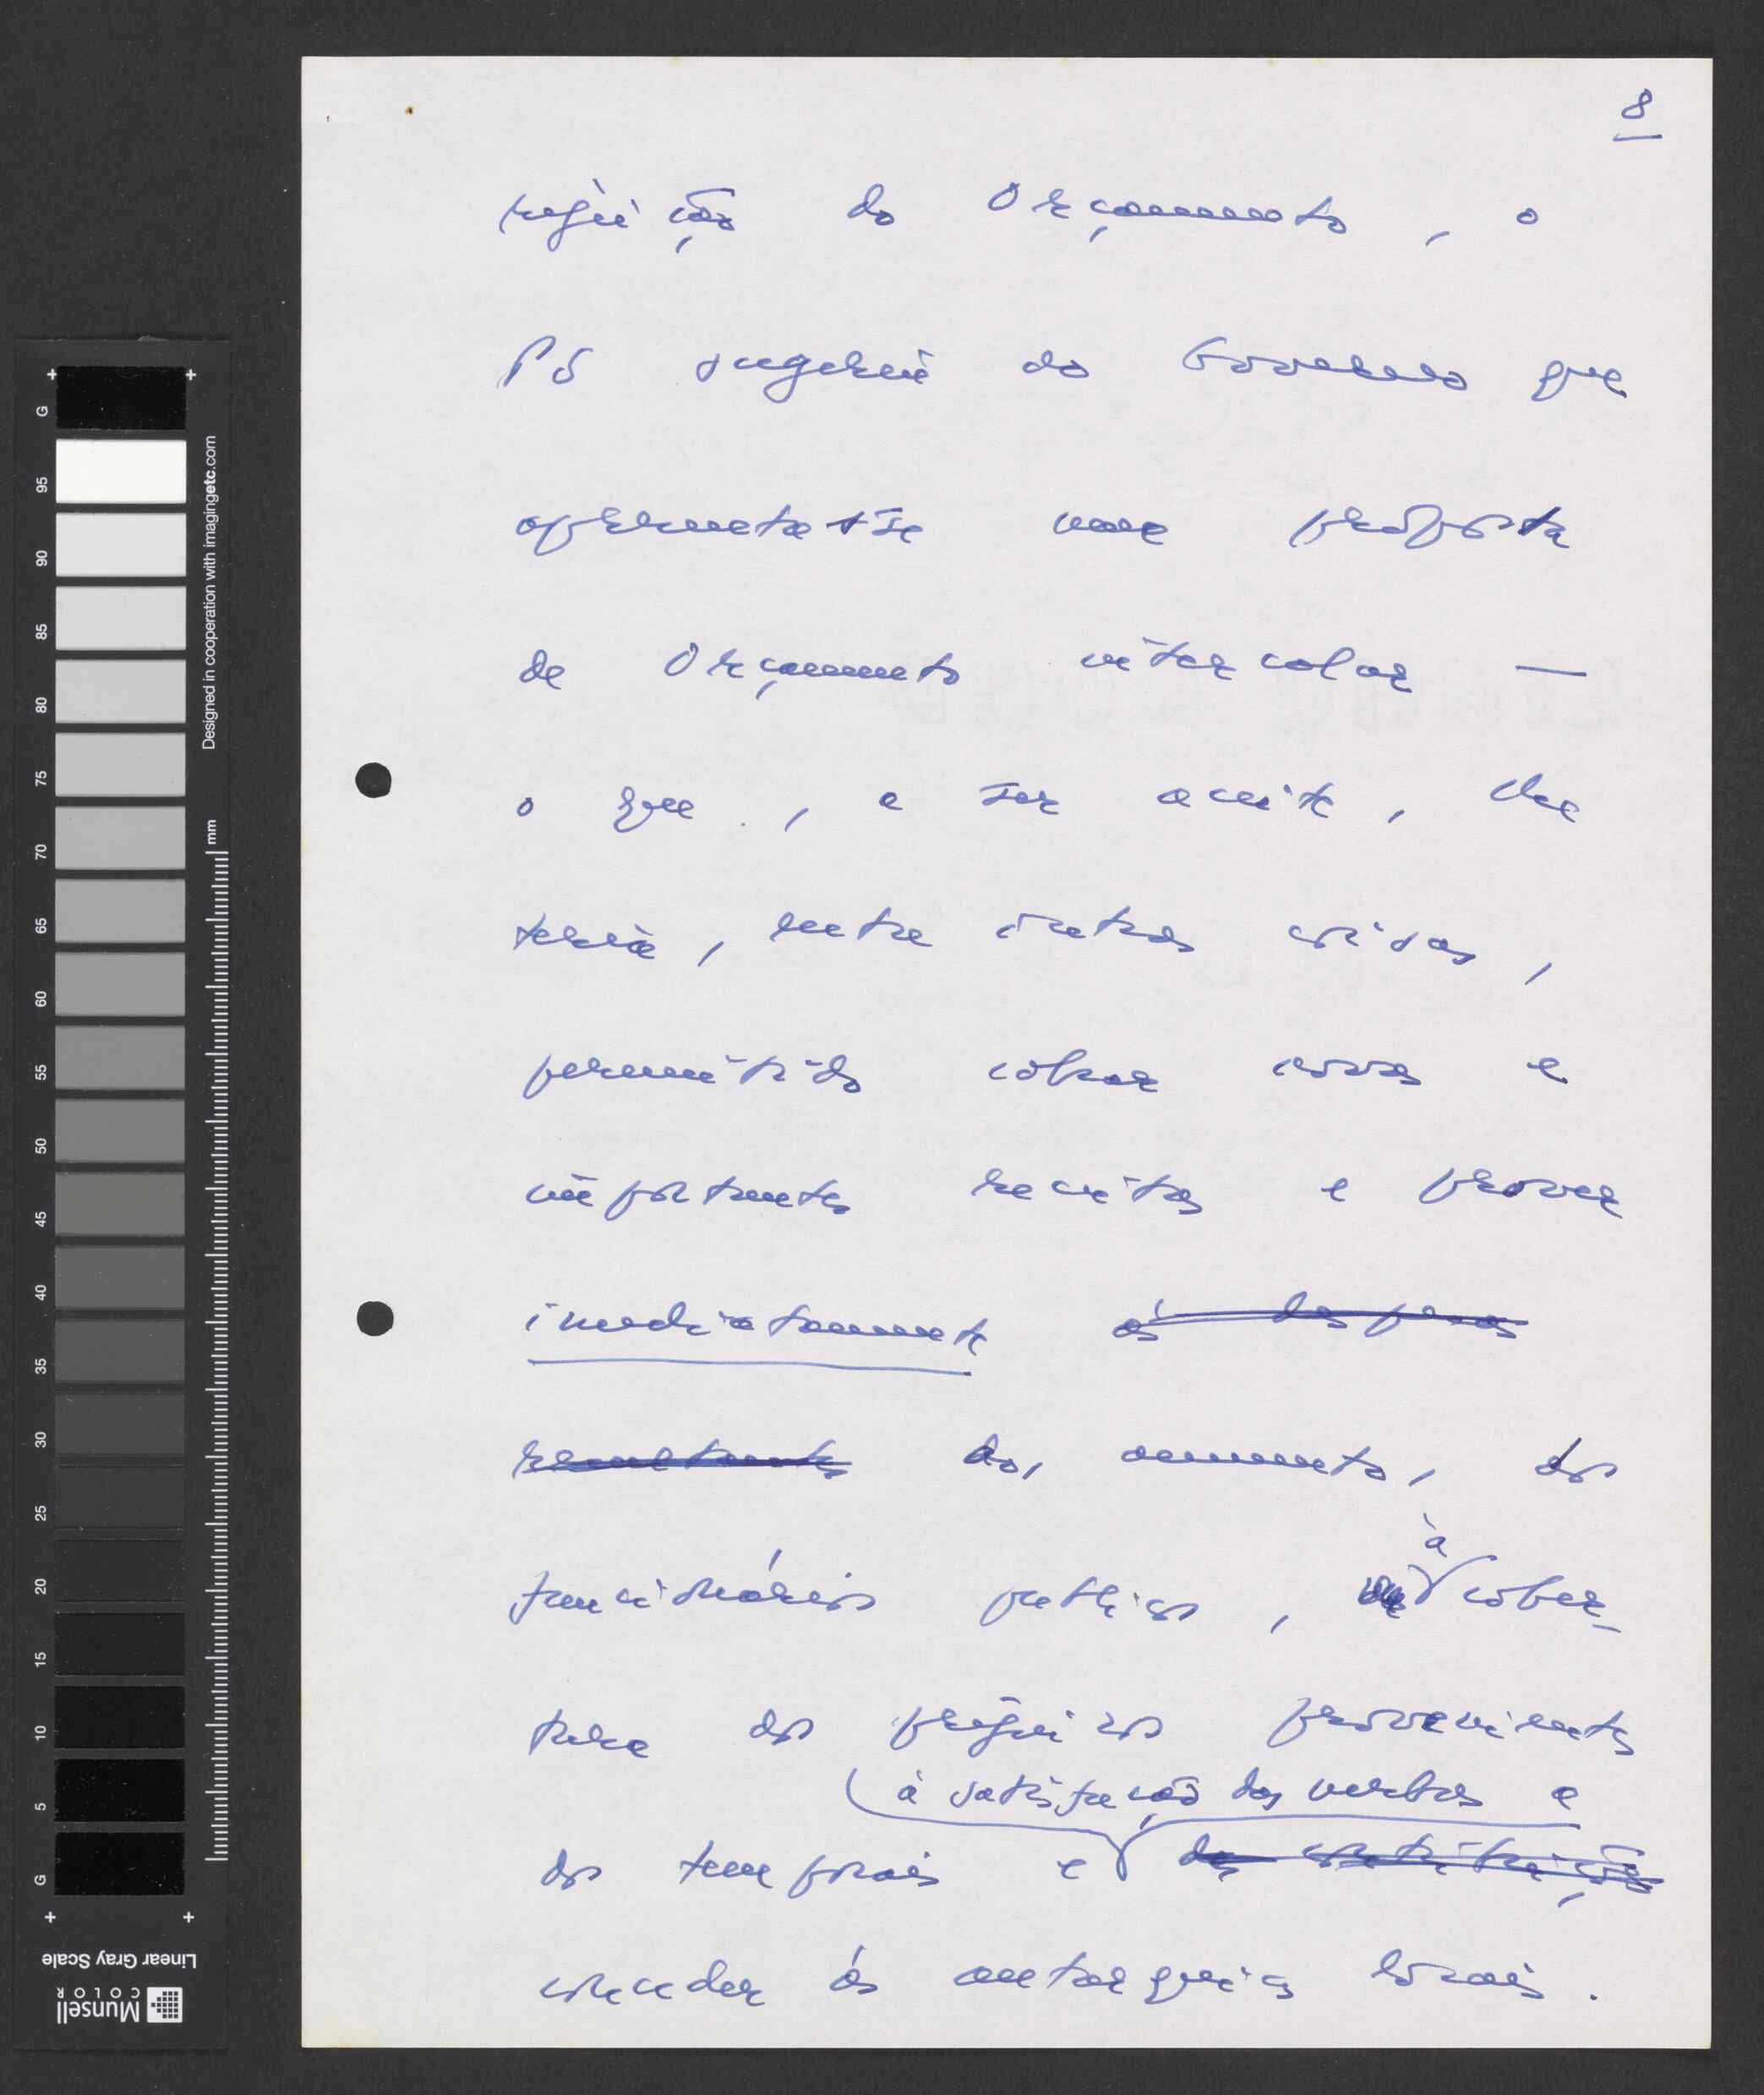 8
rejeição do Orçamento, o
PS sugeriu ao Governo que
apresentasse uma proposta
de Orçamento intercalar —
o que, a ser aceite, lhe
teria, entre outras coisas,
permitido cobrar novas e
importantes receitas e prover
imediatamente às despesas
resultantes dos aumentos, dos
funcionários públicos, à cober-
tura dos prejuízos provenientes
à satisfação das verbas a
dos temporais e das contribuições
conceder às autarquias locais.
G
95
90
85
80
75
70
65
60
55
50
45
40
35
30
25
20
15
10
5
G
mm
Designed in cooperation with imagingetc.com
Linear Gray Scale
Munsell
COLOR